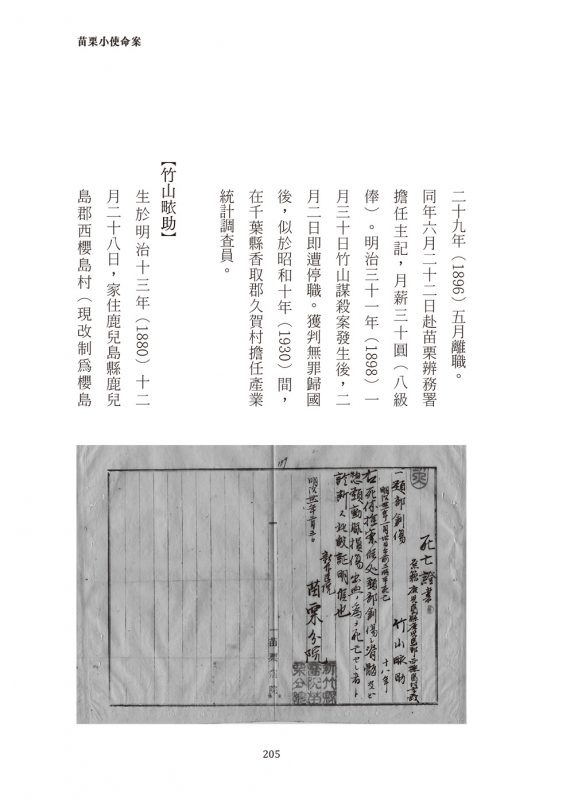 苗栗小使命案
二十九年（1896）五月離職。
同年六月二十二日赴苗栗辨務署
擔任主記，月薪三十圓（八級
俸）。明治三十一年（1898）一
月三十日竹山謀殺案發生後，二
月二日即遭停職。獲判無罪歸國
後，似於昭和十年（1930）間，
在千葉縣香取郡久賀村擔任產業
統計調查員。
【竹山畩助】
生於明治十三年（1880）十二
月二十八日，家住鹿兒島縣鹿兒
島郡西櫻島村（現改制為櫻島
死亡證書
竹山畩助
十八年
一頸部創傷
診斷ス此段証明候也
苗栗分院
新竹縣
醫院苗
栗分院
205